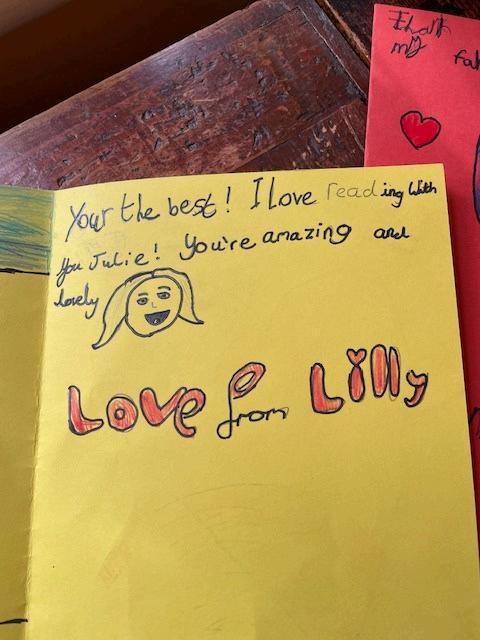 Your the best! I Love reading with
you Julie! You're amazing and
lovely
Love from Lilly
my